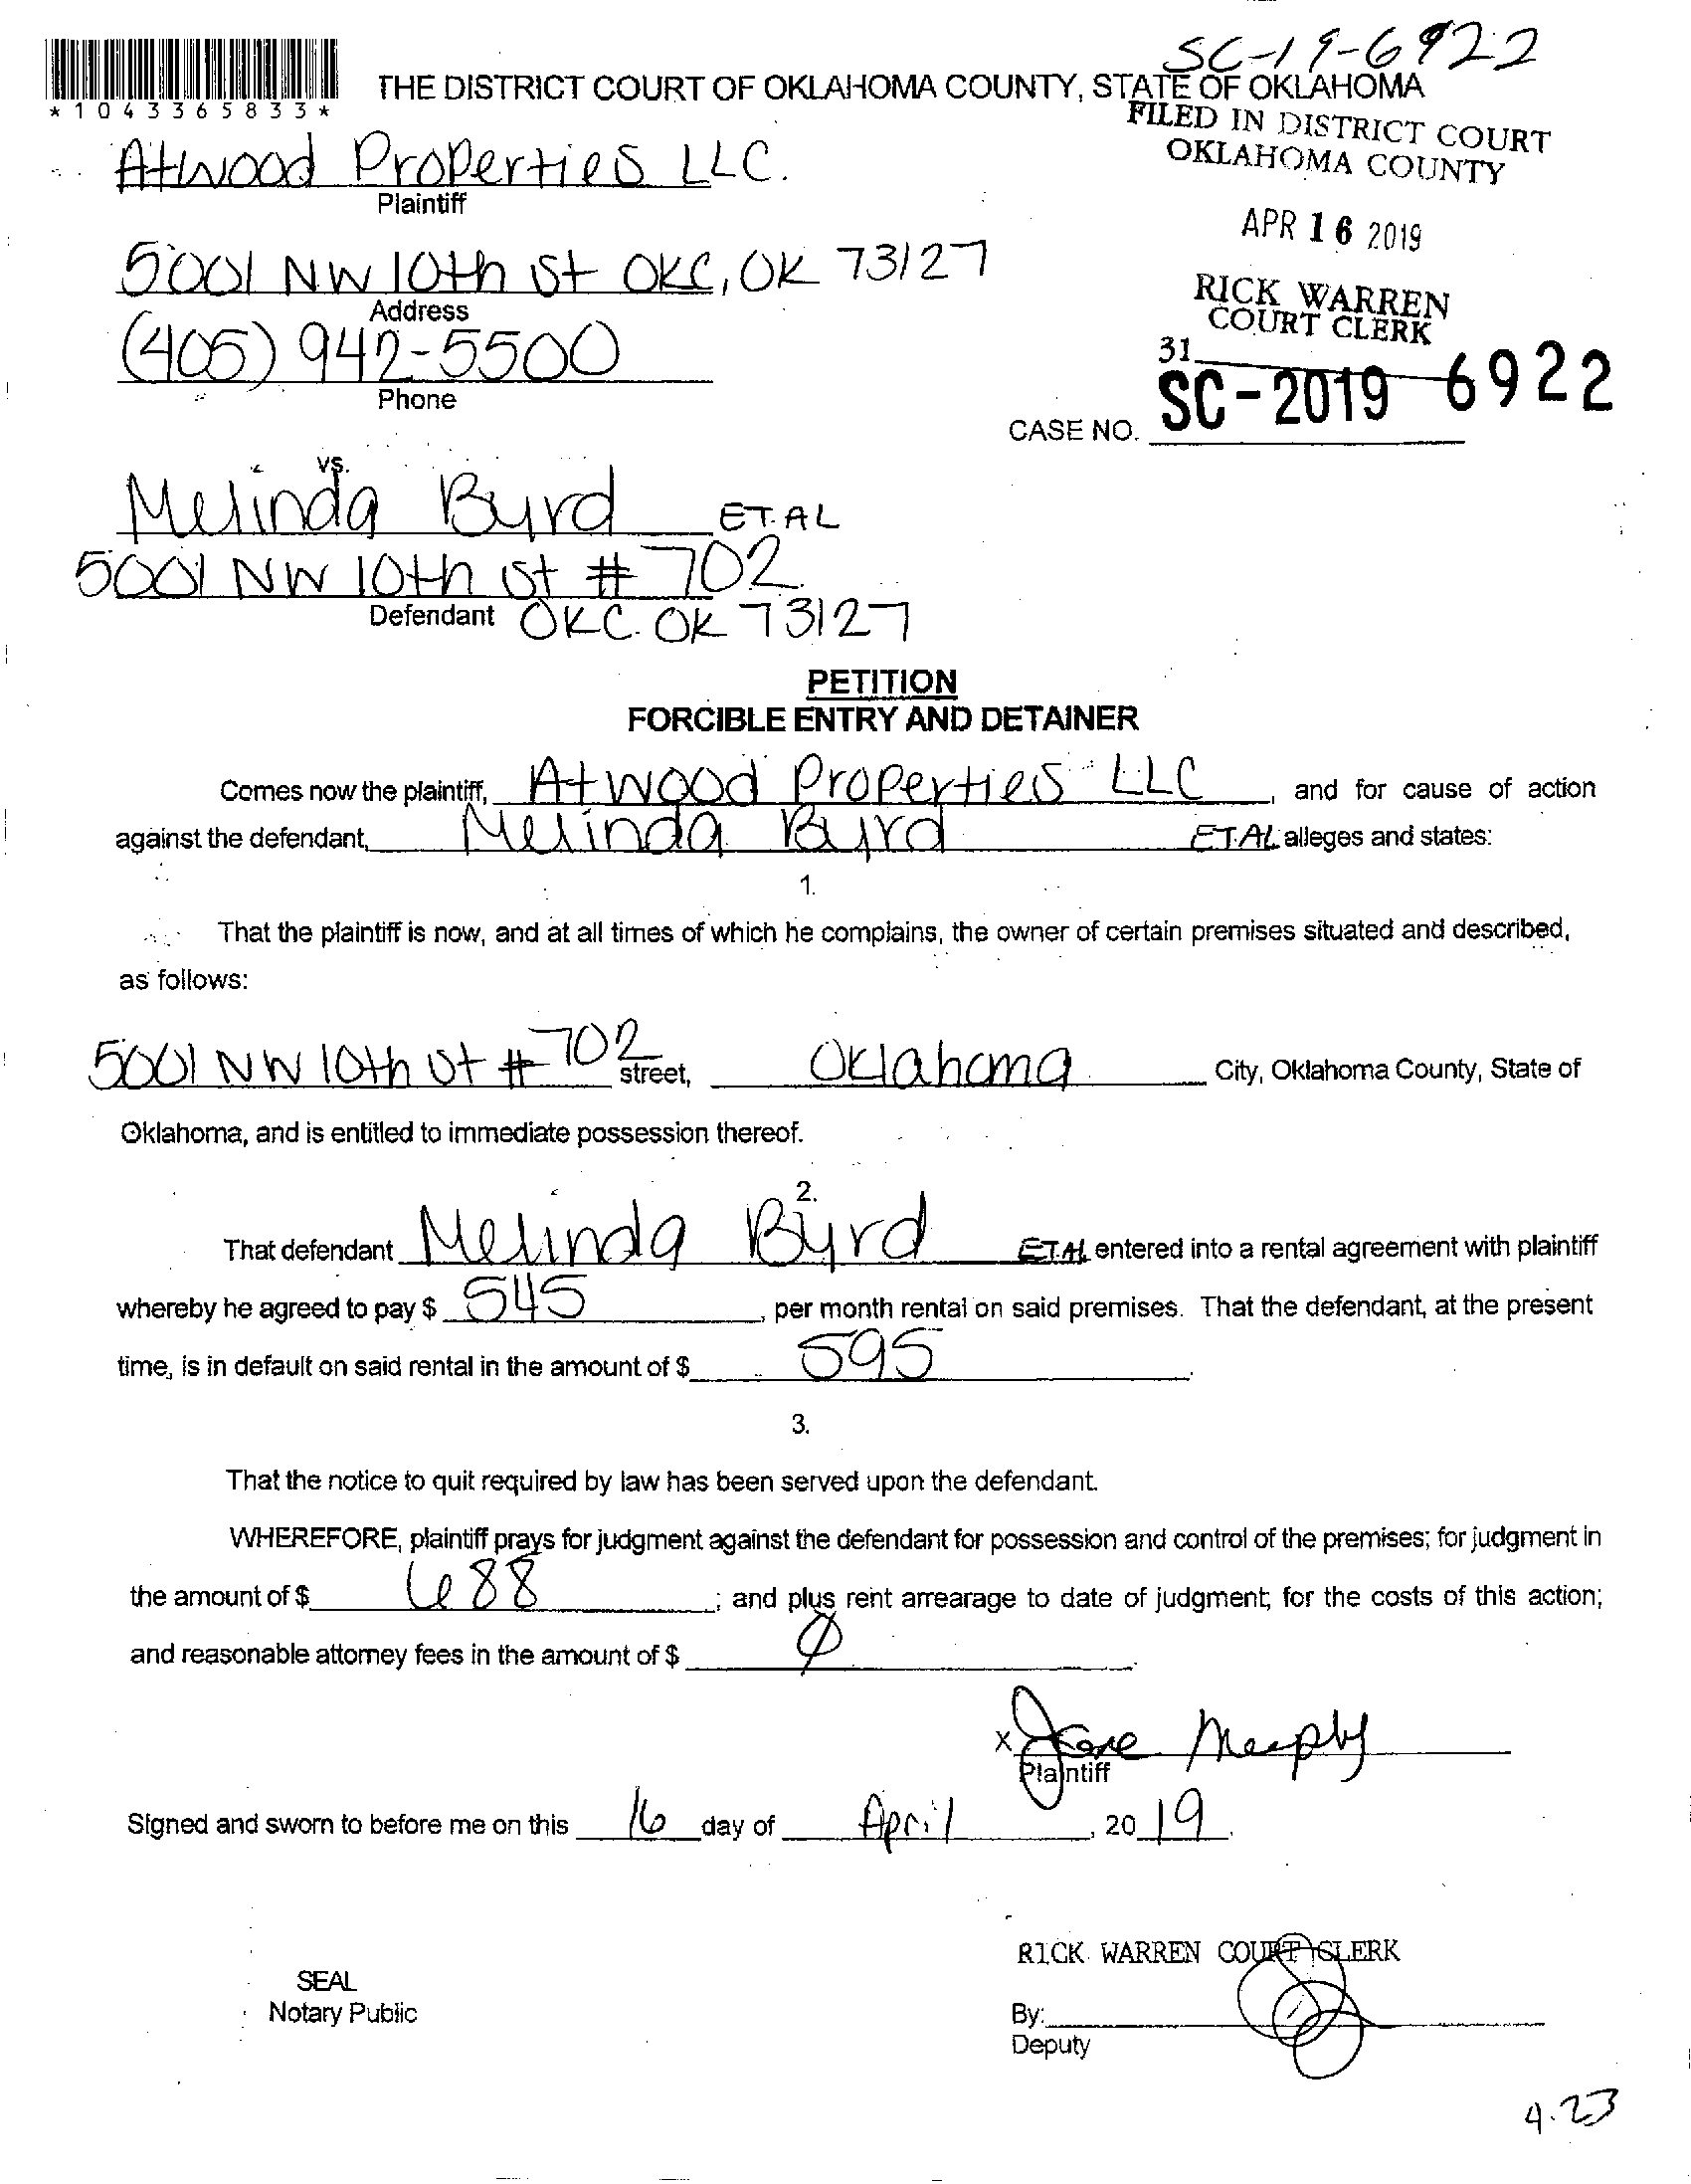 SC-19-6922
*1043365833*
THE DISTRICT COURT OF OKLAHOMA COUNTY, STATE OF OKLAHOMA
FILED IN DISTRICT COURT
OKLAHOMA COUNTY
Atwood Properties LLC.
Plaintiff
APR 16 2019
5001 NW 10th St OKC, OK 73127
Address
RICK WARREN
COURT CLERK
(405) 942-5500
Phone
31
CASE NO. SC-2019 6922
vs.
Melinda Byrd ET.AL
5001 NW 10th St # 702
Defendant OKC. OK 73127
PETITION
FORCIBLE ENTRY AND DETAINER
Comes now the plaintiff, Atwood Properties LLC, and for cause of action
against the defendant, Melinda Byrd ET.AL alleges and states:
1.
That the plaintiff is now, and at all times of which he complains, the owner of certain premises situated and described,
as follows:
5001 NW 10th St # 702 street, Oklahoma City, Oklahoma County, State of
Oklahoma, and is entitled to immediate possession thereof.
2.
That defendant Melinda Byrd ET.AL entered into a rental agreement with plaintiff
whereby he agreed to pay $ 545, per month rental on said premises. That the defendant, at the present
time, is in default on said rental in the amount of $ 595.
3.
That the notice to quit required by law has been served upon the defendant.
WHEREFORE, plaintiff prays for judgment against the defendant for possession and control of the premises; for judgment in
the amount of $ 688; and plus rent arrearage to date of judgment; for the costs of this action;
and reasonable attorney fees in the amount of $ Ø.
x
Plaintiff
Signed and sworn to before me on this 16 day of April, 2019.
RICK WARREN COURT CLERK
SEAL
Notary Public
By:
Deputy
4.23